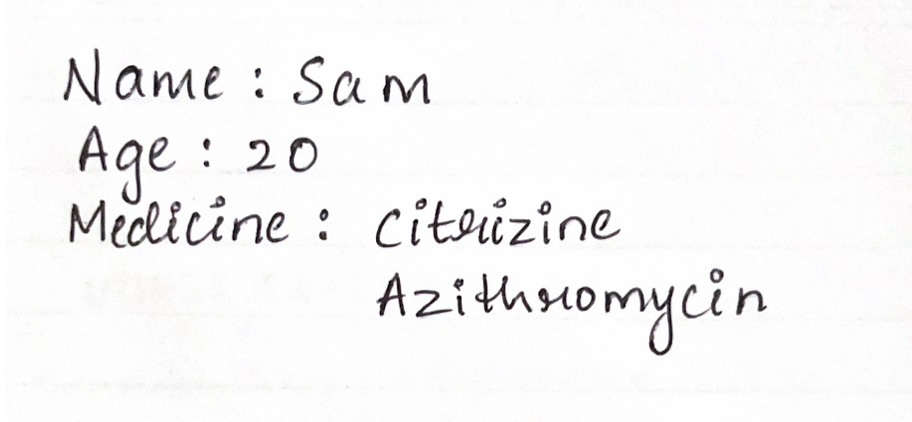 Name : Sam
Age : 20
Medicine : citrizine
Azithromycin